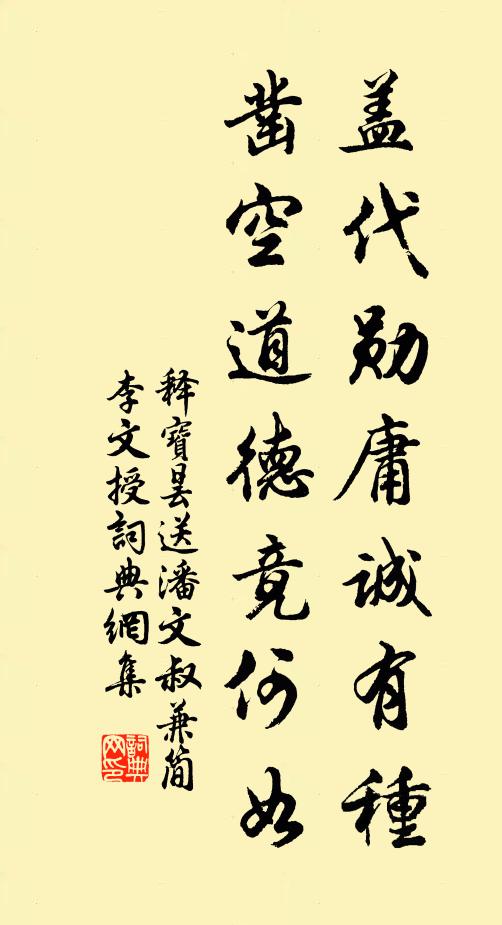 盖代勛庸诚有種
凿空道德竟何如
释寶昙送潘文叔兼简
李文授詞典網集
詞典
网印